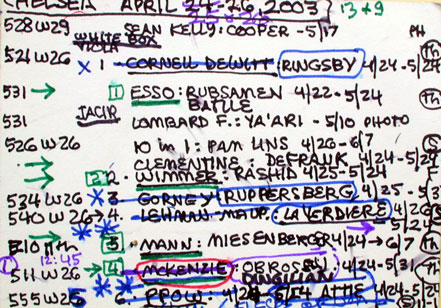 CHELSEA APRIL 24-26, 2003 13+9
528 W29 SEAN KELLY: COOPER -5/17 PH
WHITE BOX
VIOLA
521 W26 X 1 CORNELL DEWITT RINGSBY 4/24-5/24 Th
531 → 1 ESSO: RUBSAMEN 4/22-5/24 Th
BATTLE
531 JACIR LOMBARD F.: YA'ARI -5/10 PHOTO
526 W26 10 in 1: PAM LINS 4/26-6/7 S
→ CLEMENTINE: DEFRANK 4/24-5/24
→ 2 2. WIMMER: RASHID 4/25-5/24 F
534 W26 X 3. GORNEY RUPPERSBERG 4/25-5/3
540 W26 → 4. LEHMAN MAUP. LAVERDIERE 4/26
-5/24
→ 3 MANN: MIESENBERGER 4/24→6/7 Th
12:45
511 W26 → 4 MCKENZIE: OBROSSY 4/24-5/31 Th
DINGILIAN
555 W25 6. PPOW: 4/24-5/24 ATTIE